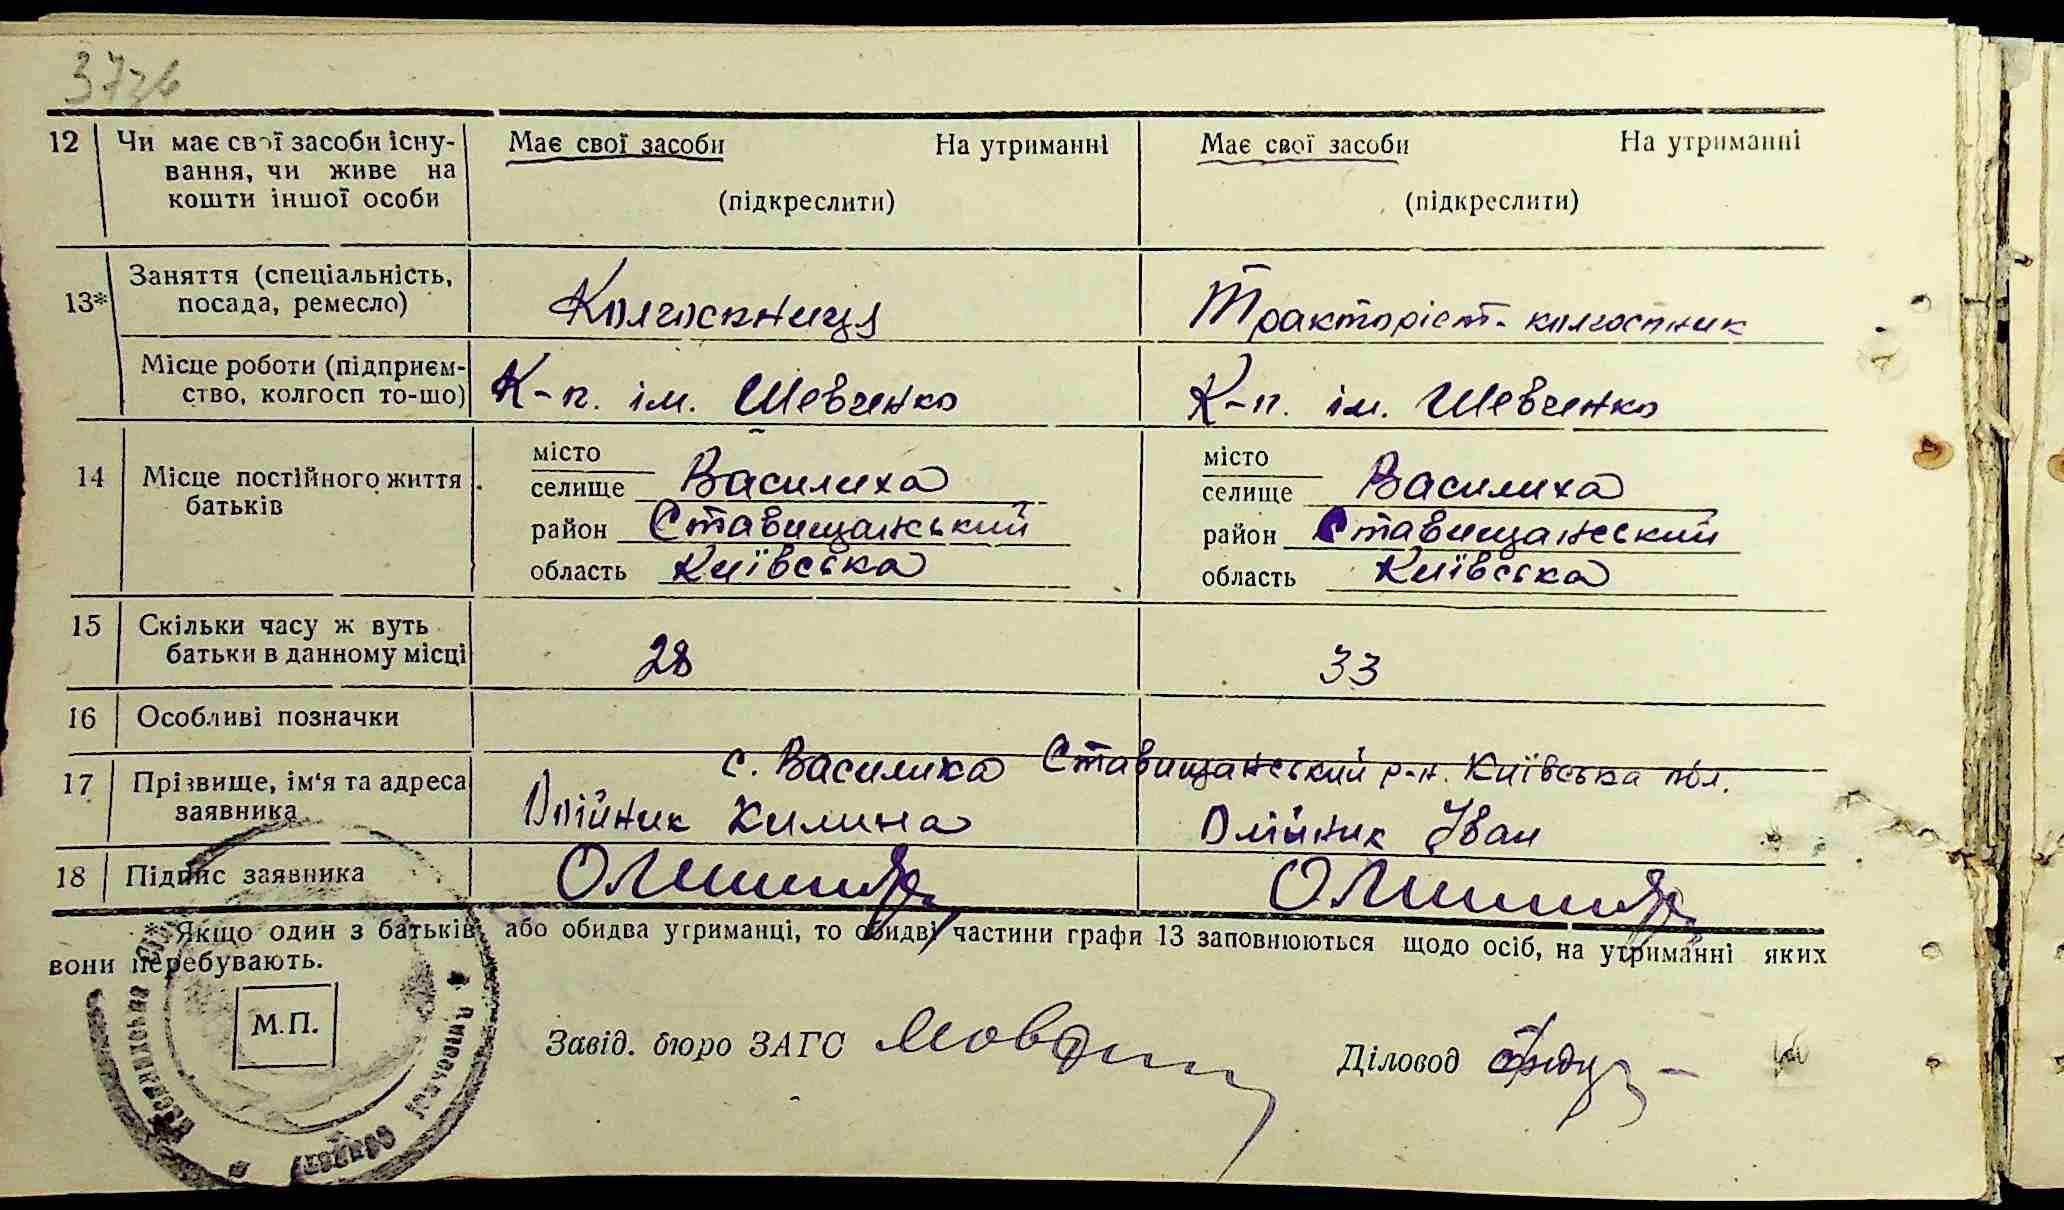 373б
12 Чи має свої засоби існу- Має свої засоби На утриманні Має свої засоби На утриманні
вання, чи живе на
кошти іншої особи (підкреслити) (підкреслити)
13* Заняття (спеціальність, посада, ремесло) Колгоспниця Тракторіст-колгоспник
Місце роботи (підприєм-
ство, колгосп то-що) К-п. ім. Шевченко К-п. ім. Шевченко
14 Місце постійного життя батьків
місто місто
селище Василиха селище Василиха
район Ставищанський район Ставищанський
область Київська область Київська
15 Скільки часу ж вуть
батьки в данному місці 28 33
16 Особливі позначки
с. Василиха Ставищанський р-н. Київська обл.
17 Прізвище, ім'я та адреса
заявника Олійник Килина Олійник Іван
18 Підпис заявника Олійник Олійник
* Якщо один з батьків або обидва утриманці, то обидві частини графи 13 заповнюються щодо осіб, на утриманні яких
вони перебувають.
М.П.
Завід. бюро ЗАГС Діловод